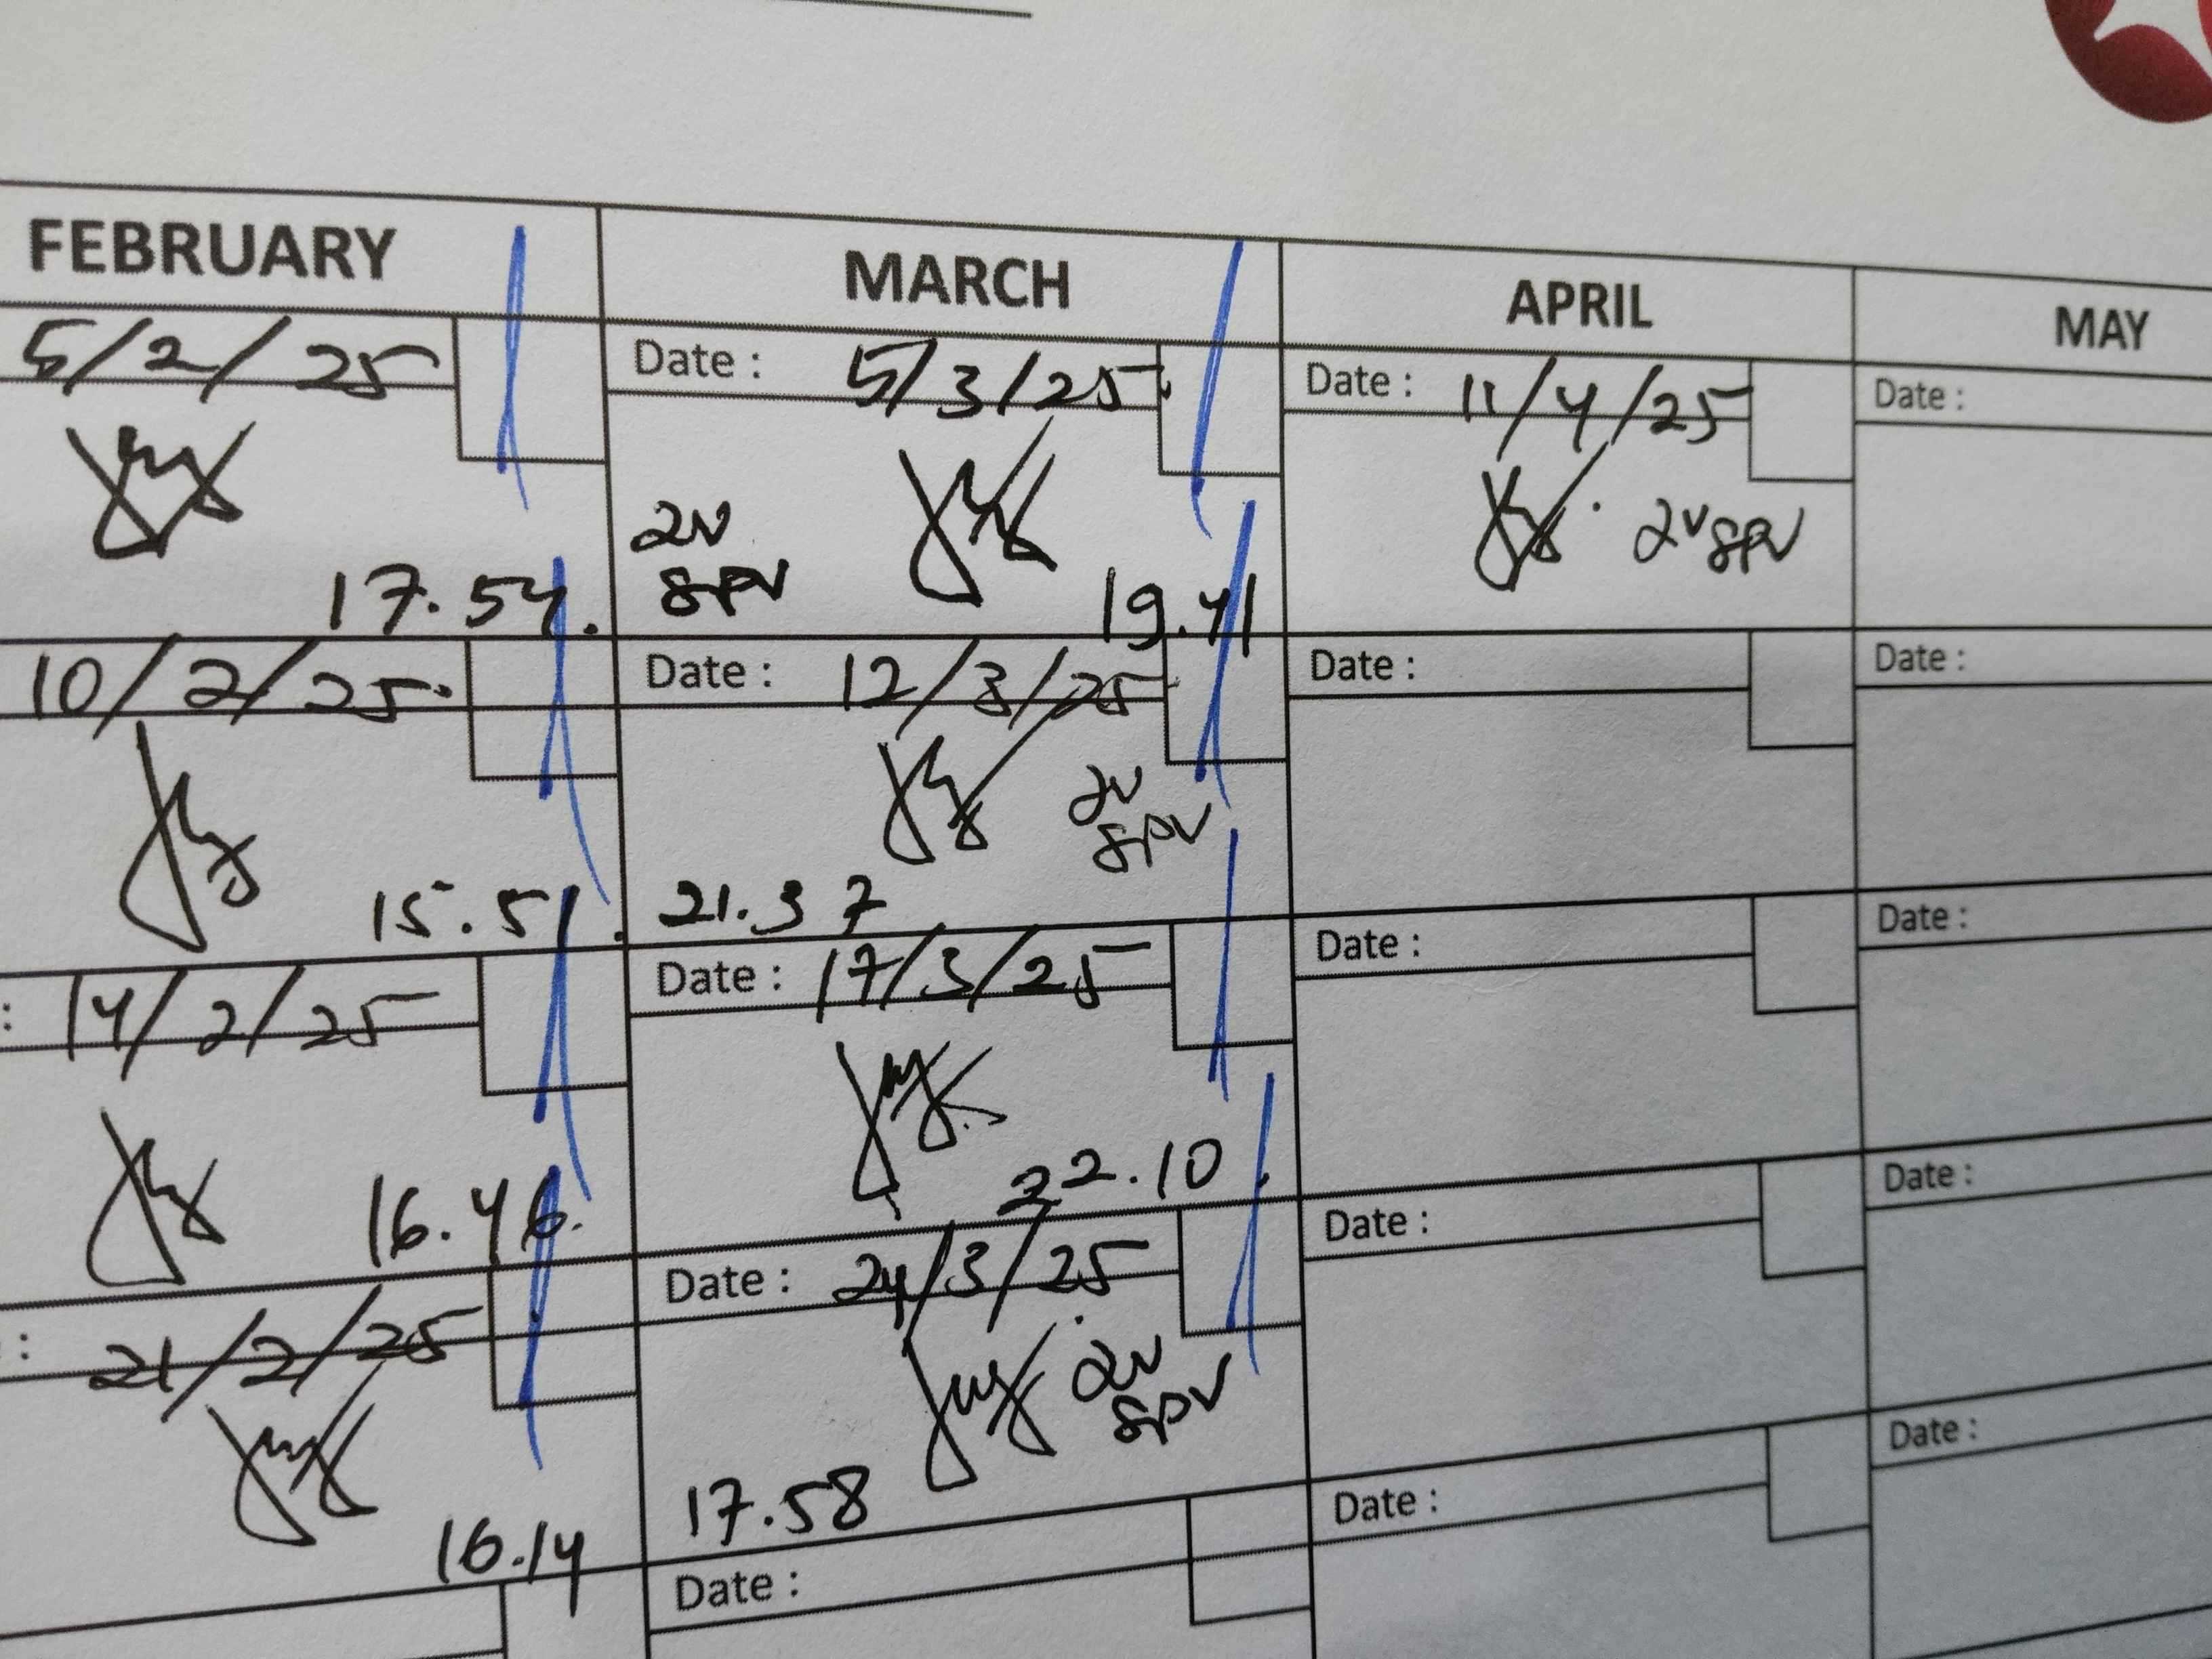 FEBRUARY
5/2/25
17.54.
10/2/25.
15.51.
: 14/2/25
16.46.
: 21/2/25
16.14
MARCH
Date : 5/3/25
2V
SPV
19.41
Date : 12/3/25
2V
SPV
21.37
Date : 17/3/25
22.10.
Date : 24/3/25
2V
SPV
17.58
Date :
APRIL
Date : 11/4/25
2V SPV
Date :
Date :
Date :
Date :
MAY
Date :
Date :
Date :
Date :
Date :